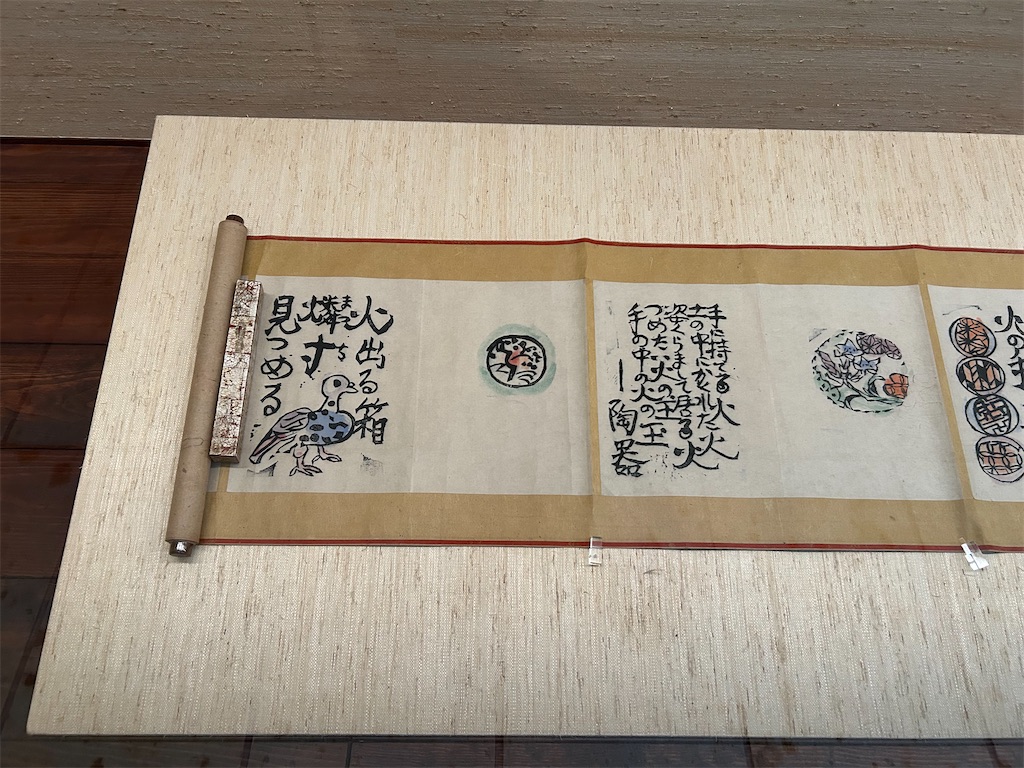 火の
手に持てる火
土の中にかくれた火
姿くらまして居る火
つめたい火の玉
手の中の火の玉
—陶器
火出る箱
燐寸
まっち
見つめる